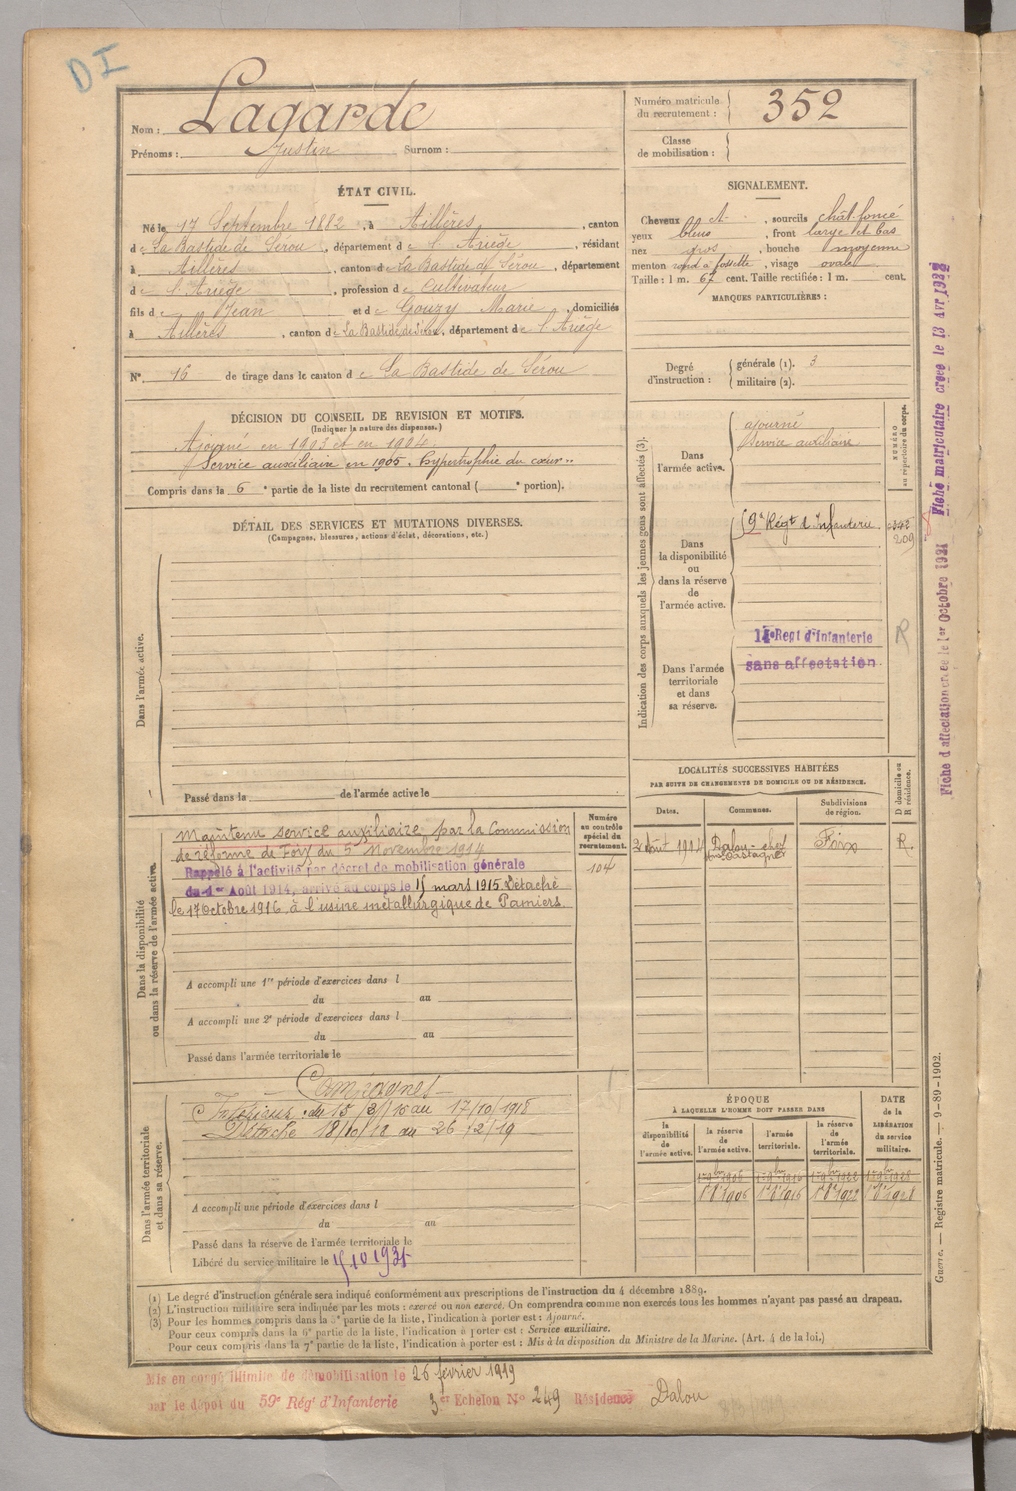 DI
Nom : Lagarde
Prénoms : Justin Surnom :
Numéro matricule du recrutement : 352
Classe de mobilisation :
ÉTAT CIVIL.
Né le 17 Septembre 1882, à Aillères, canton
de La Bastide de Sérou, département de l'Ariège, résidant
à Aillères, canton de La Bastide de Sérou, département
de l'Ariège, profession de Cultivateur
fils de Jean et de Gouzy Marie, domiciliés
à Aillères, canton de La Bastide de Sérou, département de l'Ariège
N° 16 de tirage dans le canton de La Bastide de Sérou
SIGNALEMENT.
Cheveux , sourcils chât foncé
yeux bleus, front large et bas
nez gros, bouche moyenne
menton rond à fossette, visage ovale
Taille : 1 m. 67 cent. Taille rectifiée : 1 m. cent.
MARQUES PARTICULIÈRES :
Degré d'instruction : générale (1). 3
militaire (2).
DÉCISION DU CONSEIL DE REVISION ET MOTIFS.
(Indiquer la nature des dispenses.)
Ajourné en 1903 et en 1904.
Service auxiliaire en 1905. hypertrophie du cœur..
Compris dans la 6e partie de la liste du recrutement cantonal ( e portion).
DÉTAIL DES SERVICES ET MUTATIONS DIVERSES.
(Campagnes, blessures, actions d'éclat, décorations, etc.)
Dans l'armée active.
Passé dans la de l'armée active le
Indication des corps auxquels les jeunes gens sont affectés (3).
NUMÉRO au répertoire du corps.
Dans l'armée active.
ajourné
Service auxiliaire
Dans la disponibilité ou dans la réserve de l'armée active.
59e Régt d'Infanterie
209
Dans l'armée territoriale et dans sa réserve.
Regt d'Infanterie
sans affectation
R
Fiche d'affectation créée le 1er Octobre 1921
Fiche matriculaire créée le 13 Avr 1932
Dans la disponibilité ou dans la réserve de l'armée active.
Numéro au contrôle spécial du recrutement.
104
Maintenu service auxiliaire par la Commission
de réforme de Foix du 5 Novembre 1914
Rappelé à l'activité par décret de mobilisation générale
du 1er Août 1914, arrivé au corps le 15 mars 1915 Détaché
le 17 Octobre 1916 à l'usine métallurgique de Pamiers.
A accompli une 1re période d'exercices dans l
du au
A accompli une 2e période d'exercices dans l
du au
Passé dans l'armée territoriale le
LOCALITÉS SUCCESSIVES HABITÉES
PAR SUITE DE CHANGEMENTS DE DOMICILE OU DE RÉSIDENCE.
Dates. Communes. Subdivisions de région. D domicile ou R résidence.
Août Dalou Foix R.
Dans l'armée territoriale et dans sa réserve.
Campagnes
Intérieur : du 15/3/15 au 17/10/1916
Détaché 18/10/16 au 26/2/19
A accompli une période d'exercices dans l
du au
Passé dans la réserve de l'armée territoriale le
Libéré du service militaire le
ÉPOQUE
À LAQUELLE L'HOMME DOIT PASSER DANS
la disponibilité de l'armée active. la réserve de l'armée active. l'armée territoriale. la réserve de l'armée territoriale.
DATE de la LIBÉRATION du service militaire.
1 9bre 1906 1 9bre 1916 1 9bre 1922 1 9bre 1928
1 8bre 1906 1 8bre 1916 1 8bre 1922 1 8bre 1928
(1) Le degré d'instruction générale sera indiqué conformément aux prescriptions de l'instruction du 4 décembre 1889.
(2) L'instruction militaire sera indiquée par les mots : exercé ou non exercé. On comprendra comme non exercés tous les hommes n'ayant pas passé au drapeau.
(3) Pour les hommes compris dans la 5e partie de la liste, l'indication à porter est : Ajourné.
Pour ceux compris dans la 6e partie de la liste, l'indication à porter est : Service auxiliaire.
Pour ceux compris dans la 7e partie de la liste, l'indication à porter est : Mis à la disposition du Ministre de la Marine. (Art. 4 de la loi.)
Guerre. — Registre matricule. — 9-89-1902.
Mis en congé illimité de démobilisation le 26 février 1919
par le dépôt du 59e Rég d'Infanterie 3er Echelon N° 249 Résidence Dalou